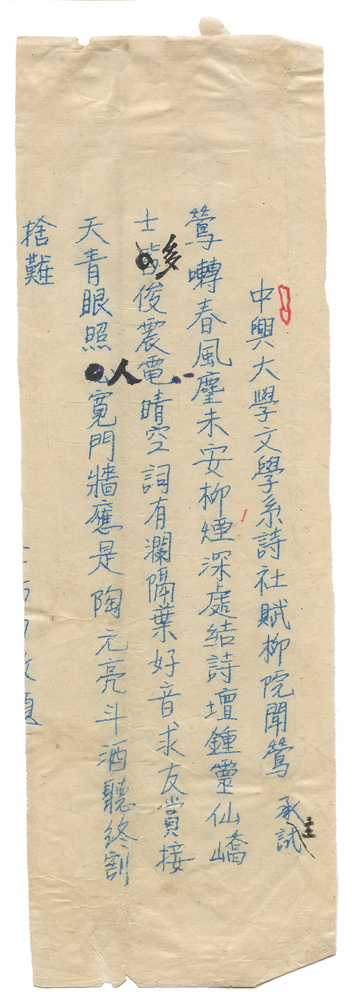 中興大學文學系詩社賦柳院聞鶯 承主試
鶯囀春風塵未安柳煙深處結詩壇鍾靈仙嶠
士多俊震電晴空詞有瀾隔葉好音求友賞接
天青眼照人寬門牆應是陶元亮斗酒聽終割
捨難